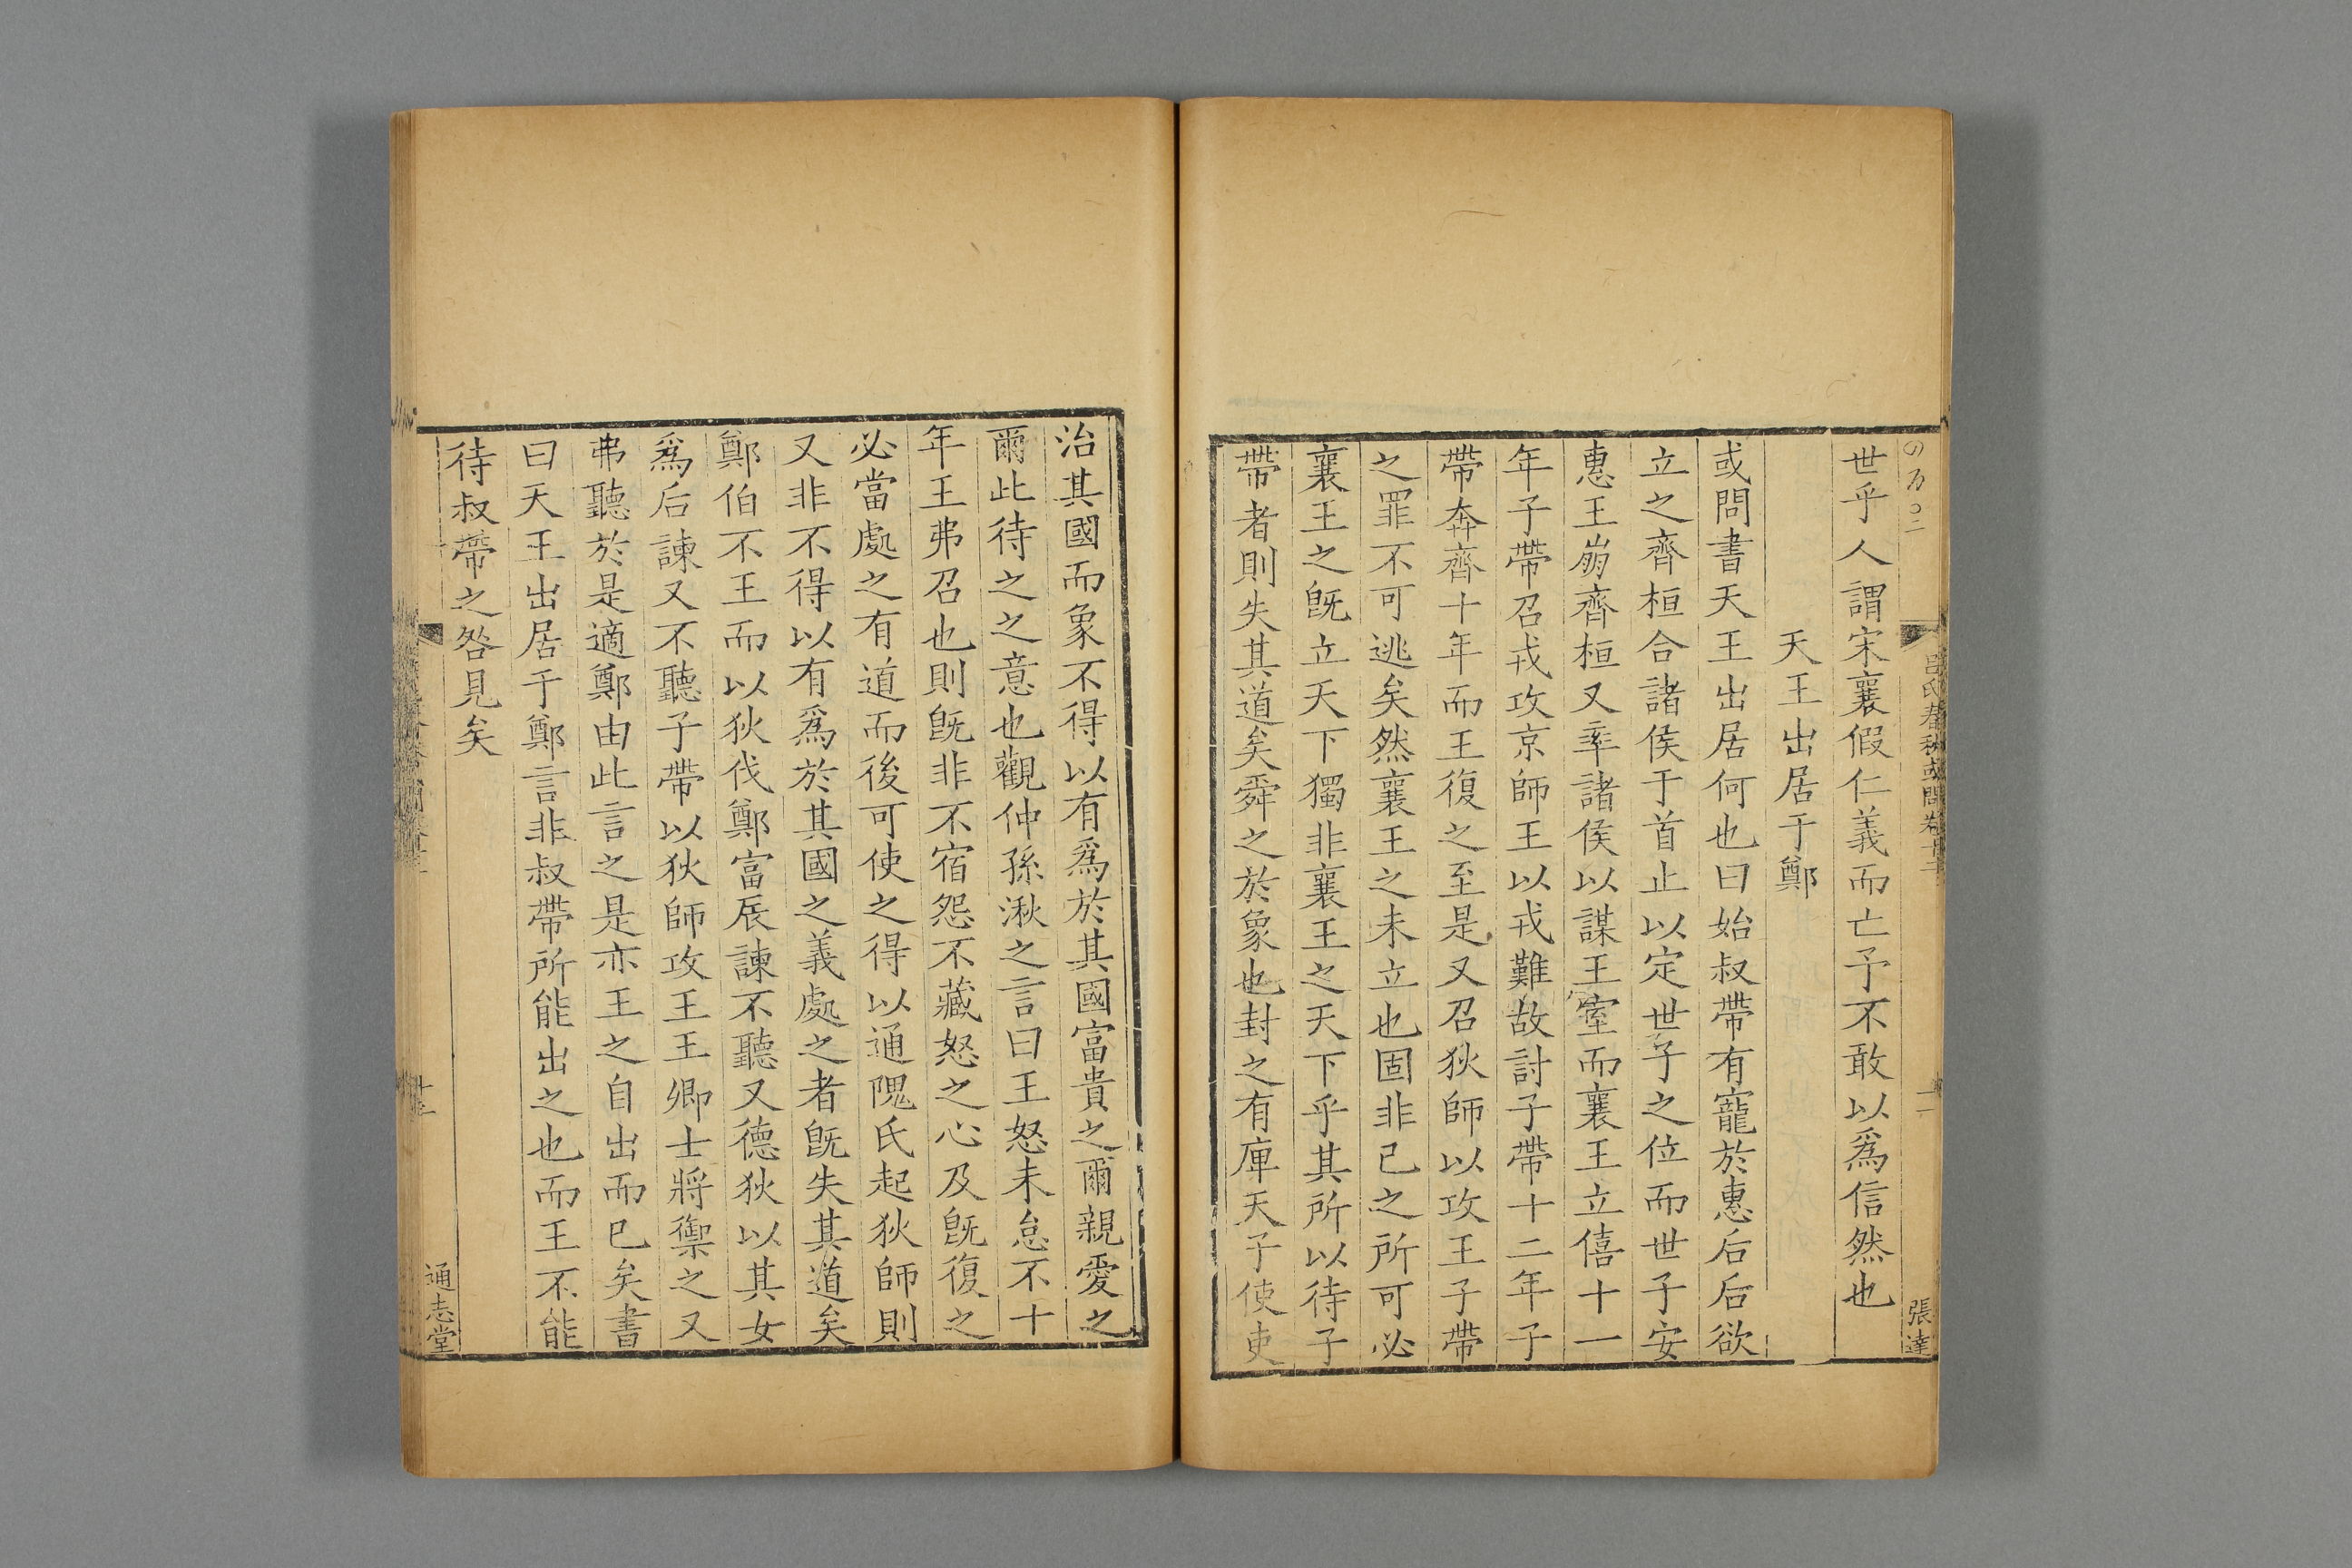 呂氏春秋或問卷十三
張達
世乎人謂宋襄假仁義而亡予不敢以爲信然也
天王出居于鄭
或問書天王出居何也曰始叔帶有寵於惠后后欲
立之齊桓合諸侯于首止以定世子之位而世子安
惠王崩齊桓又率諸侯以謀王室而襄王立僖十一
年子帶召戎攻京師王以戎難故討子帶十二年子
帶奔齊十年而王復之至是又召狄師以攻王子帶
之罪不可逃矣然襄王之未立也固非已之所可必
襄王之旣立天下獨非襄王之天下乎其所以待子
帶者則失其道矣舜之於象也封之有庳天子使吏
治其國而象不得以有爲於其國富貴之爾親愛之
爾此待之之意也觀仲孫湫之言曰王怒未怠不十
年王弗召也則旣非不宿怨不藏怒之心及旣復之
必當處之有道而後可使之得以通隗氏起狄師則
又非不得以有爲於其國之義處之者旣失其道矣
鄭伯不王而以狄伐鄭富辰諫不聽又德狄以其女
爲后諫又不聽子帶以狄師攻王王卿士將禦之又
弗聽於是適鄭由此言之是亦王之自出而已矣書
曰天王出居于鄭言非叔帶所能出之也而王不能
待叔帶之咎見矣
通志堂